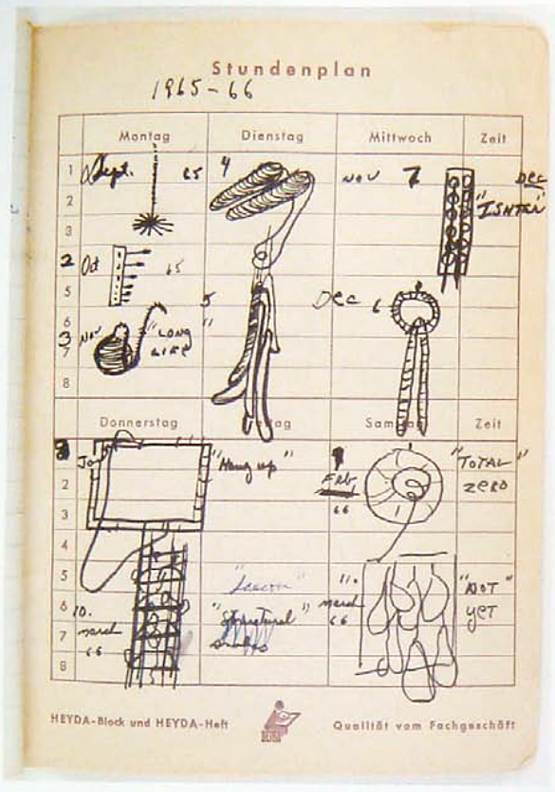 Stundenplan
1965-66
Montag Dienstag Mittwoch Zeit
1 Sept. 65 4 NOV 7 DEC
2 "ISHTAR"
3
2 Oct 65
5 5 Dec 6
6
3 Nov "LONG
7 LIFE"
8
Donnerstag tag Sam Zeit
Ja "Hang up" "TOTAL
2 Feb ZERO"
3 66
4
5 11. "NOT
6 10. "Structural" march yet"
7 march 66
8 66
HEYDA-Block und HEYDA-Heft Qualität vom Fachgeschäft